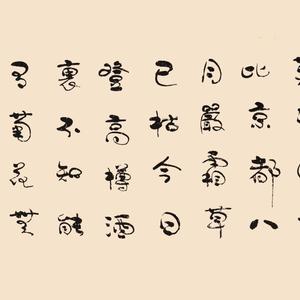 比京都八
月嚴霜草
已枯今日
登高樽酒
裏不知能
有菊花無